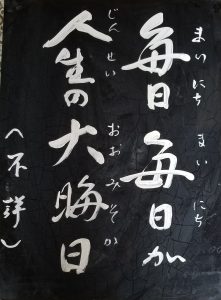 毎日毎日が
まいにち まいにち
人生の大晦日
じんせい おおみそか
(不詳)